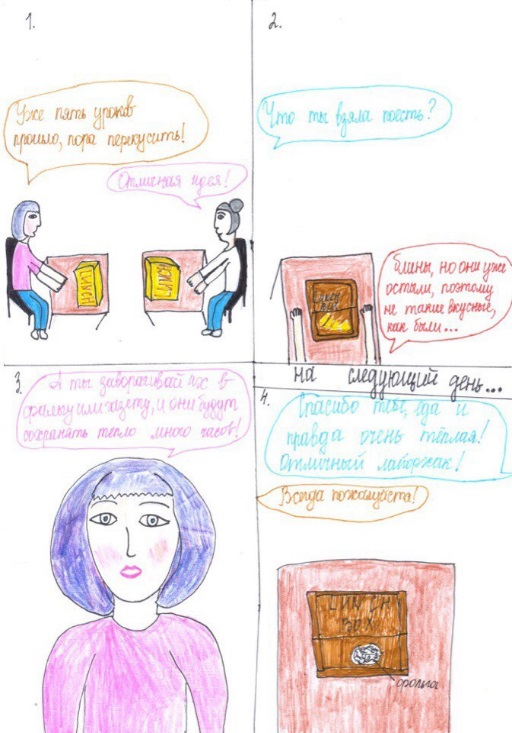 1.
Уже пять уроков
прошло, пора перекусить!
Отличная идея!
2.
Что ты взяла поесть?
Блины, но они уже
остыли, поэтому
не такие вкусные,
как были...
3.
А ты заворачивай их в
фольгу или газету, и они будут
сохранять тепло много часов!
на следующий день...
4.
Спасибо тебе, еда и
правда очень тёплая!
Отличный лайфхак!
Всегда пожалуйста!
LUNCH
BOX
фольга